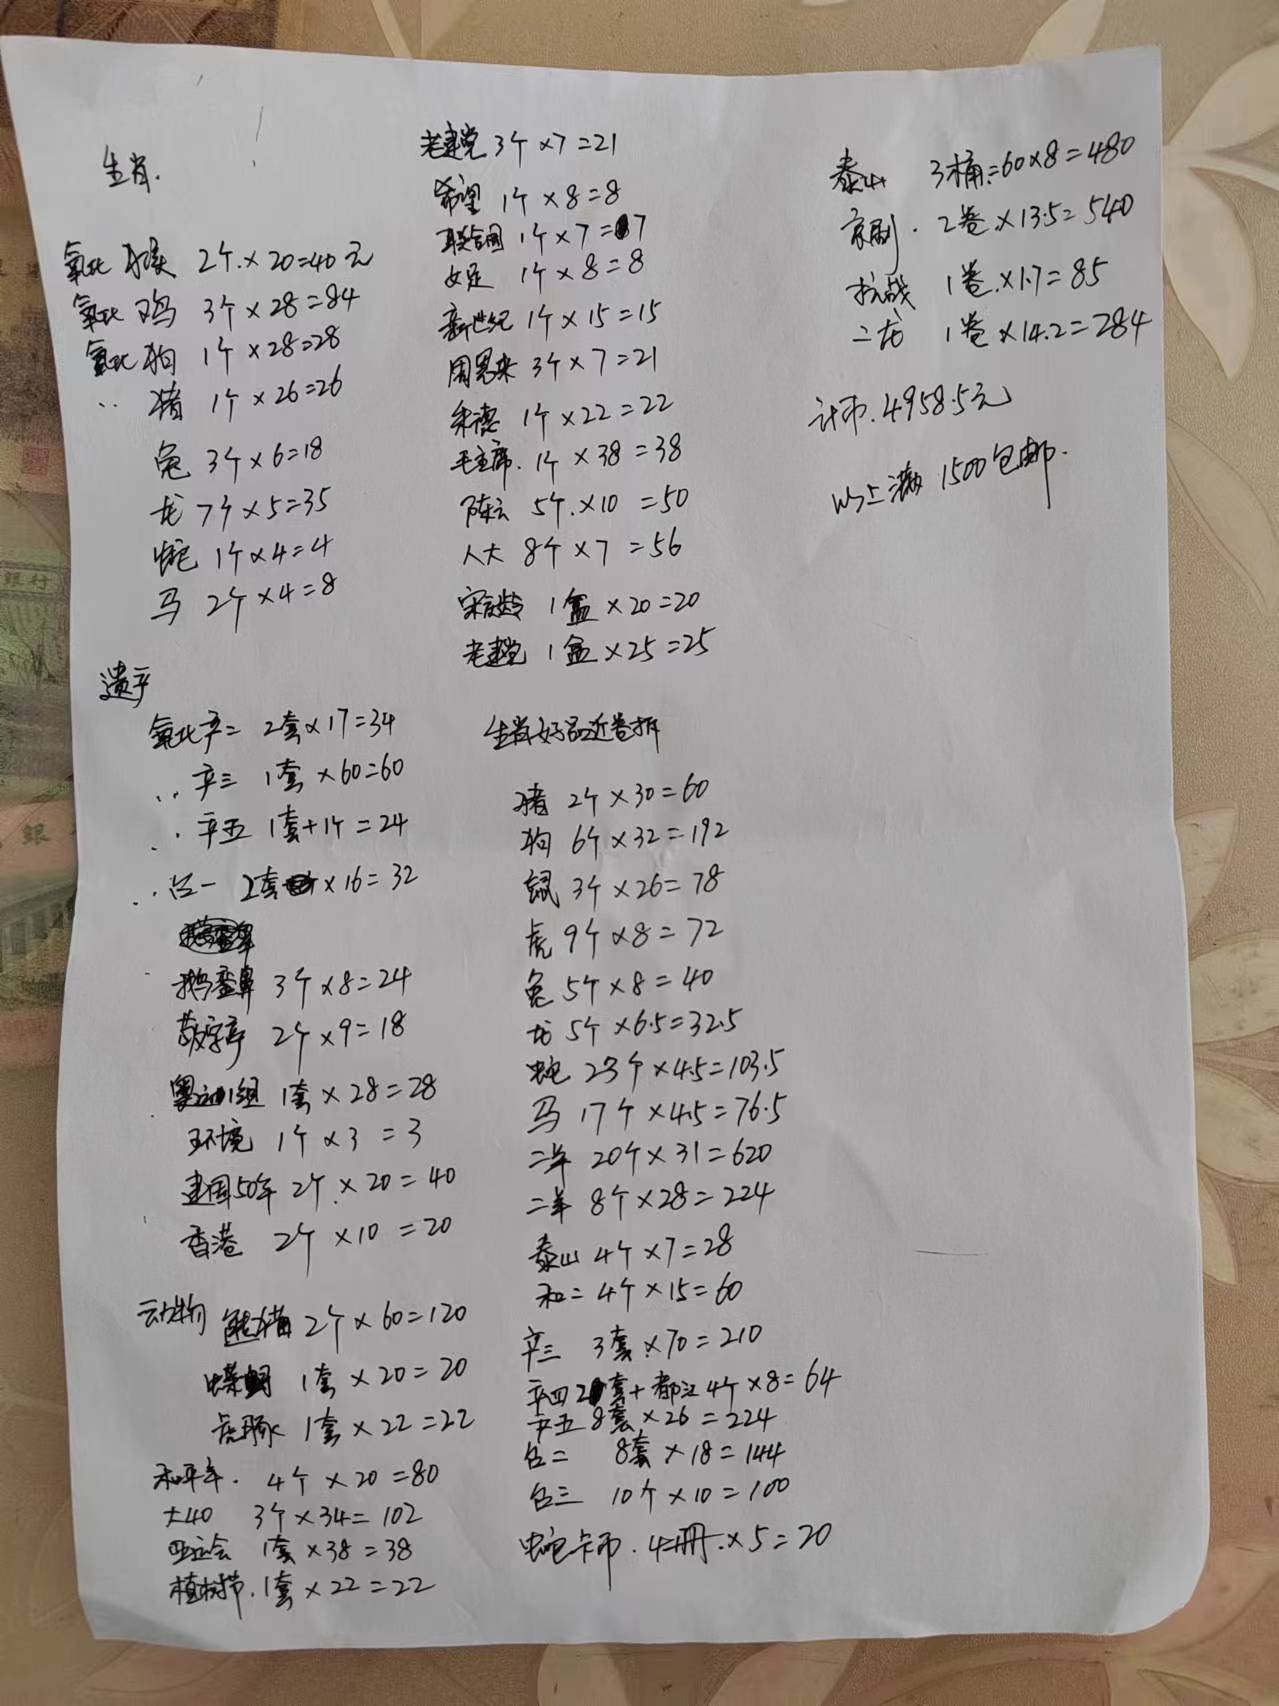 生肖.
氧化猴 2个.×20=40元
氧化鸡 3个×28=84
氧化狗 1个×28=28
‥ 猪 1个×26=26
兔 3个×6=18
龙 7个×5=35
蛇 1个×4=4
马 2个×4=8
遗产
氧化卒二 2套×17=34
‥卒三 1套×60=60
‥卒五 1套+1个=24
‥台一 2套×16=32
鹅銮鼻 3个×8=24
敬字亭 2个×9=18
奥运1组 1套×28=28
环境 1个×3=3
建国50年 2个.×20=40
香港 2个×10=20
动物 熊猫 2个×60=120
蝶 1套×20=20
虎豚 1套×22=22
和平年. 4个×20=80
大40 3个×34=102
亚运会 1套×38=38
植树节.1套×22=22
老建党 3个×7=21
希望 1个×8=8
联合国 1个×7=7
女足 1个×8=8
新世纪 1个×15=15
周恩来 3个×7=21
朱德 1个×22=22
毛主席.1个×38=38
陈云 5个.×10=50
人大 8个×7=56
宋庆龄 1盒×20=20
老建党 1盒×25=25
生肖好品近卷拆
猪 2个×30=60
狗 6个×32=192
鼠 3个×26=78
虎 9个×8=72
兔 5个×8=40
龙 5个×6.5=32.5
蛇 23个×4.5=103.5
马 17个×4.5=76.5
二羊 20个×31=620
二羊 8个×28=224
泰山 4个×7=28
和二 4个×15=60
卒三 3套×70=210
卒四2套+都江4个×8=64
卒五 8套×26=224
台二 8套×18=144
台三 10个×10=100
蛇卡币.4册.×5=20
泰山 3桶:=60×8=480
京剧.2卷×13.5=540
抗战 1卷.×1.7=85
二龙 1卷×14.2=284
计币.4958.5元
以上满1500包邮.